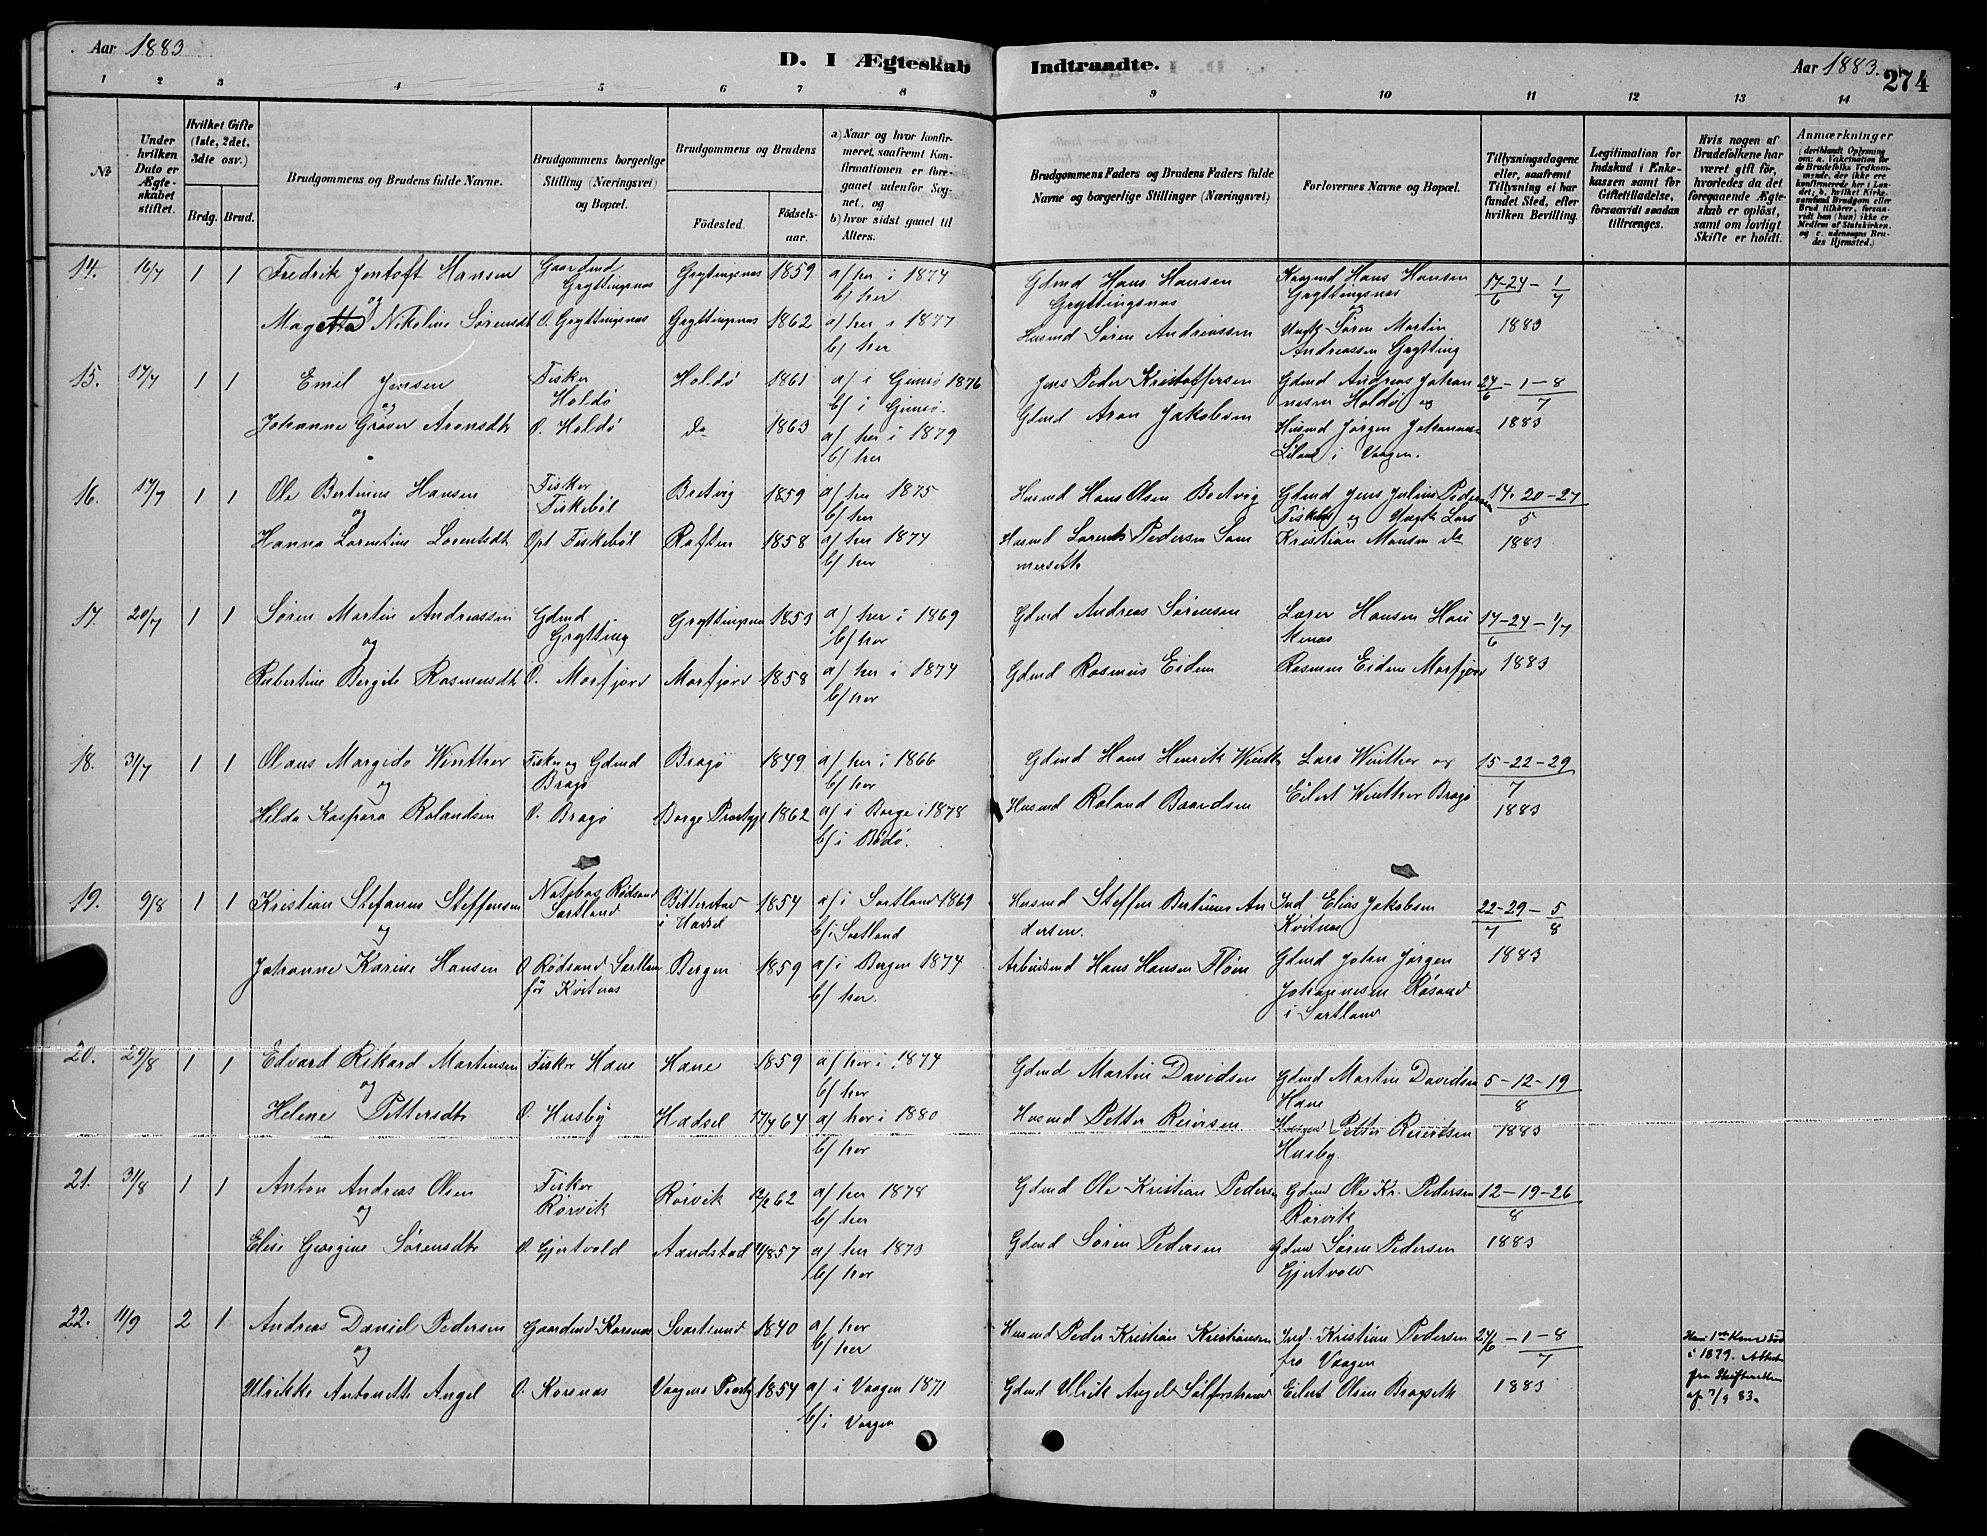 Aar 1883
D. I Ægteskab
Indtraadte.
Aar 1883.
274
1 2 3 4 5 6 7 8
9 10 11 12 13 14
No
Under hvilken Dato er Ægteskabet stiftet.
Hvilket Gifte (1ste, 2det, 3die osv.)
Brdg. Brud.
Brudgommens og Brudens fulde Navne.
Brudgommens borgerlige Stilling (Næringsvei) og Bopæl.
Brudgommens og Brudens
Fødested.
Fødselsaar.
a) Naar og hvor konfirmeret, saafremt Konfirmationen er foregaaet udenfor Sognet, og
b) hvor sidst gaaet til Alters.
Brudgommens Faders og Brudens Faders fulde Navne og borgerlige Stillinger (Næringsvei)
Forlovernes Navne og Bopæl.
Tillysningsdagene eller, saafremt Tillysning ei har fundet Sted, efter hvilken Bevilling.
Legitimation for Indskud i Enkekassen samt for Giftetilladelse, forsaavidt saadan tiltrænges.
Hvis nogen af Brudefolkene har været gift før, hvorledes da det foregaaende Ægteskab er opløst, samt om lovligt Skifte er holdt.
Anmærkninger
14. 16/7 1 1 Fredrik Jentoft Hansen Gaardmd Gryttingsnæs Grytingsnæs 1859 a/ her i 1874 b/ her Gdmd Hans Hansen Gryttingsnæs Hans Hansen Gryttingsnæs 17-24-1 6 7
og
Nikoline Sørensdt O. Gryttingsnæs Gryttingsnæs 1862 a/ her i 1877 b/ her Husmd Søren Andreassen Ungk Søren Martin Andreassen Grytting 1883
15. 17/7 1 1 Emil Jensen Fisker Holdø Holdø 1861 a/ i Gimsø 1876 b/ i Gimsø. Jens Peder Kristoffersen Gdmd Andreas Johannesen Holdø og 24-1-8 6 7
og
Johanne Grøver Aronsdt O. Holdø do 1863 a/ her i 1879 b/ her Gdmd Aron Jakobsen Husmd Jørgen i Vaagen. 1883
16. 17/7 1 1 Ole Bertinus Hansen Fisker Fiskebøl Bretvig 1859 a/ her 1875 b/ her Husmd Hans Olsen Gdmd Jens Julius Pedersen Fiskebøl og Ungk Lars 14-20-27 5
og
Hanna Lorentine Lorentsdt Opt Fiskebøl Raften 1858 a/ her 1874 b/ her Husmd Lorents Pedersen Sommersæth Kristian Hansen do 1883
17. 20/7 1 1 Søren Martin Andreassen Gdmd Grytting Gryttingsnæs 1853 a/ her i 1869 b/ her Gdmd Andreas Sørensen Hansen 17-24-1/7 6
og
Rubertine Bergite Rasmusdt O. Morfjord Morfjord 1858 a/ her i 1874 b/ her Gdmd Rasmus Eidem Rasmus Eidem Morfjord 1883
18. 31/7 1 1 Olaus Margido Winther Fisker og Gdmd Bragø Bragø 1849 a/ her i 1866 b/ her Gdmd Hans Henrik Winth Lars Winther og 15-22-29 7
og
Hilda Kaspara Rolandsen O. Bragø Borge Prestgj 1862 a/ i Borge i 1878 b/ i Bodø. Husmd Roland Baardsen Eilert Winther Bragø 1883
19. 9/8 1 1 Kristian Stefanus Steffensen Rødsand Sortland Bitterstad i Hadsel 1854 a/ i Sortland 1869 b/ i Sortland Husmd Steffen Bertinus Andersen. Ind. Elias Jakobsen Kvitnæs 22-29-5 7 8
og
Johanne Karine Hansen O Rødsand Sortlan før Kvitnæs Bergen 1859 a/ i Bergen 1874 b/ her. Arbeidsmd Hans Hansen Gdmd Johan Jørgen Johannesen Røsand i Sortland 1883
20. 29/8 1 1 Edvard Rikard Martinsen Fisker Hane Hane 1859 a/ her i 1874 b/ her Gdmd Martin Davidsen Gdmd Martin Davidsen Hane 5-12-19 8
og
Helene Pettersdtr O. Husby Hadsel 17/4 64 a/ her i 1880 b/ her Husmd Petter Reiersen Husmd Petter Reiertsen Husby 1883
21. 31/8 1 1 Anton Andreas Olsen Fisker Rørvik Rørvik 12/2 62 a/ her 1878 b/ her Gdmd Ole Kristian Pedersn Gdmd Ole Kr. Pedersen Rørvik 12-19-26 8
og
Elise Georgine Sørensdtr O. Gjertvold Aandstad 1857 a/ her 1873 b/ her Gdmd Søren Pedersen Gdmd Søren Pedersen Gjertvold 1883
22. 11/9 2 1 Andreas Daniel Pedersen Gaardmd Korsnæs Svartsund 1840 a/ her b/ her Husmd Peder Kristian Kristiansen Ind. Kristian Pedersen fra Vaagen 24/6-1-8 7 Hans 1ste Kone død i 1879. Attest fra Skifteretten af 7/9 83.
og
Ulrikke Antonette Angel O. Korsnæs Vaagens Prestgj 1854 a/ i Vaagen 1871 b/ i Vaagen Gdmd Ulrik Angel Eilert Olsen 1883